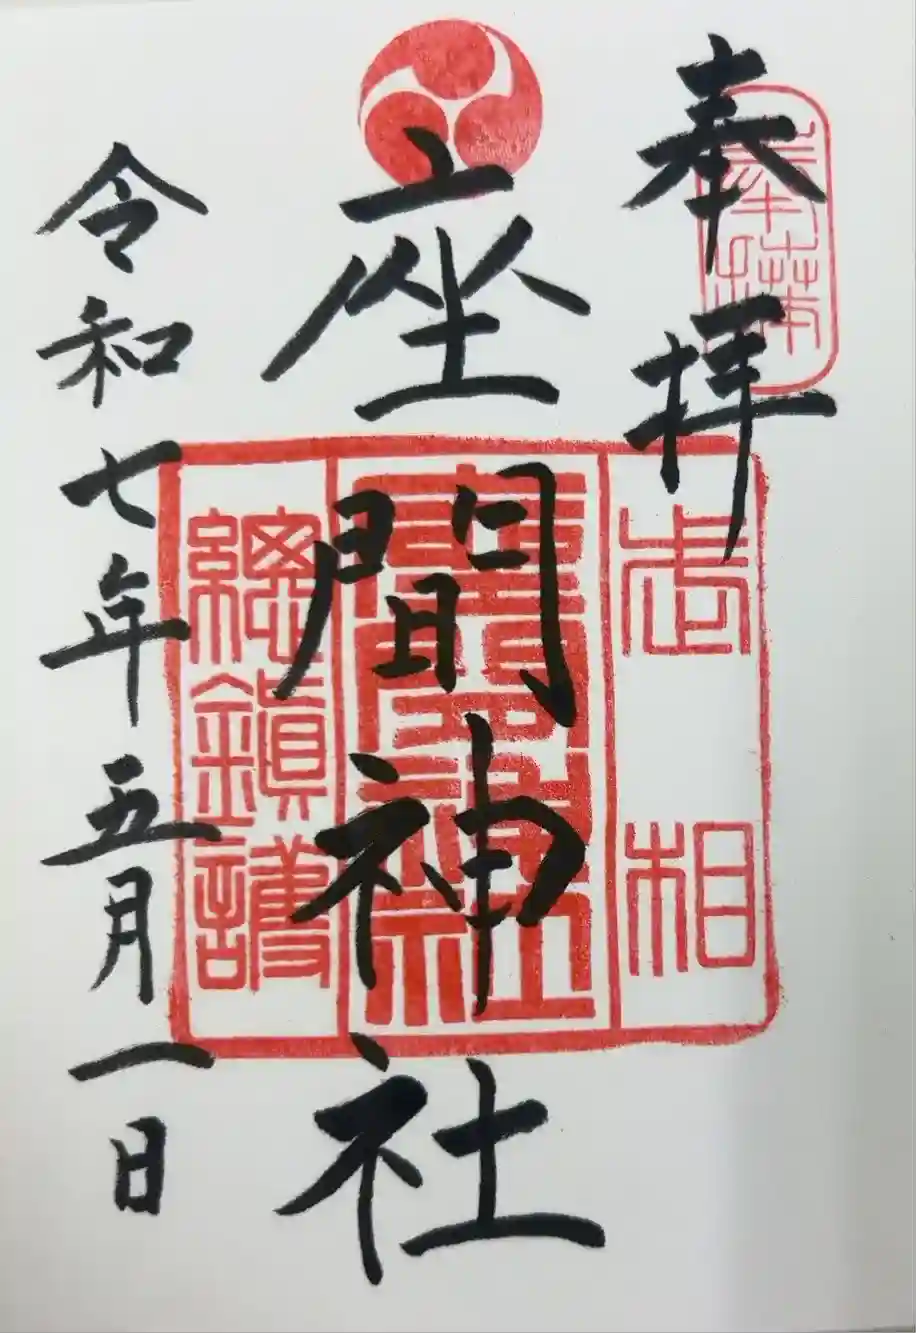 奉拝
奉拝
志相
座間神社
座間神社
總鎮護
令和七年五月一日